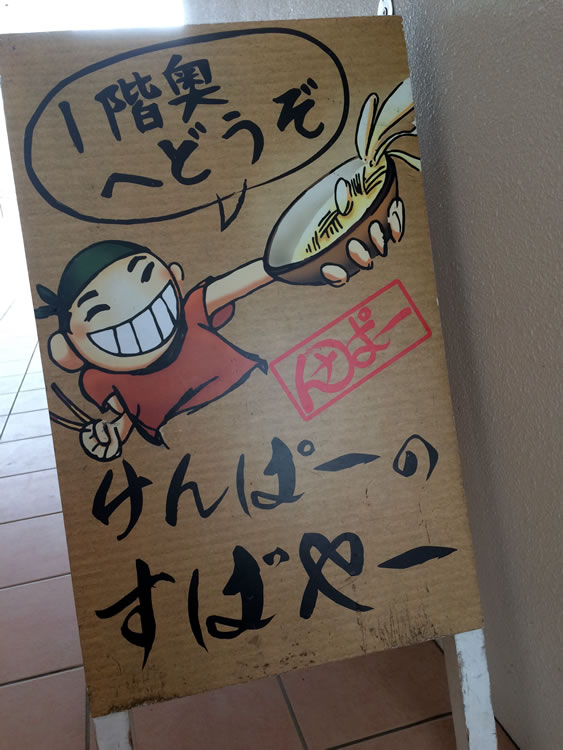 1階奥
へどうぞ
けんぱー
けんぱーの
すばやー